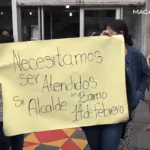 MACA
Necesitamos
ser Atendidos
Sr Alcalde Barrio
14 de Febrero